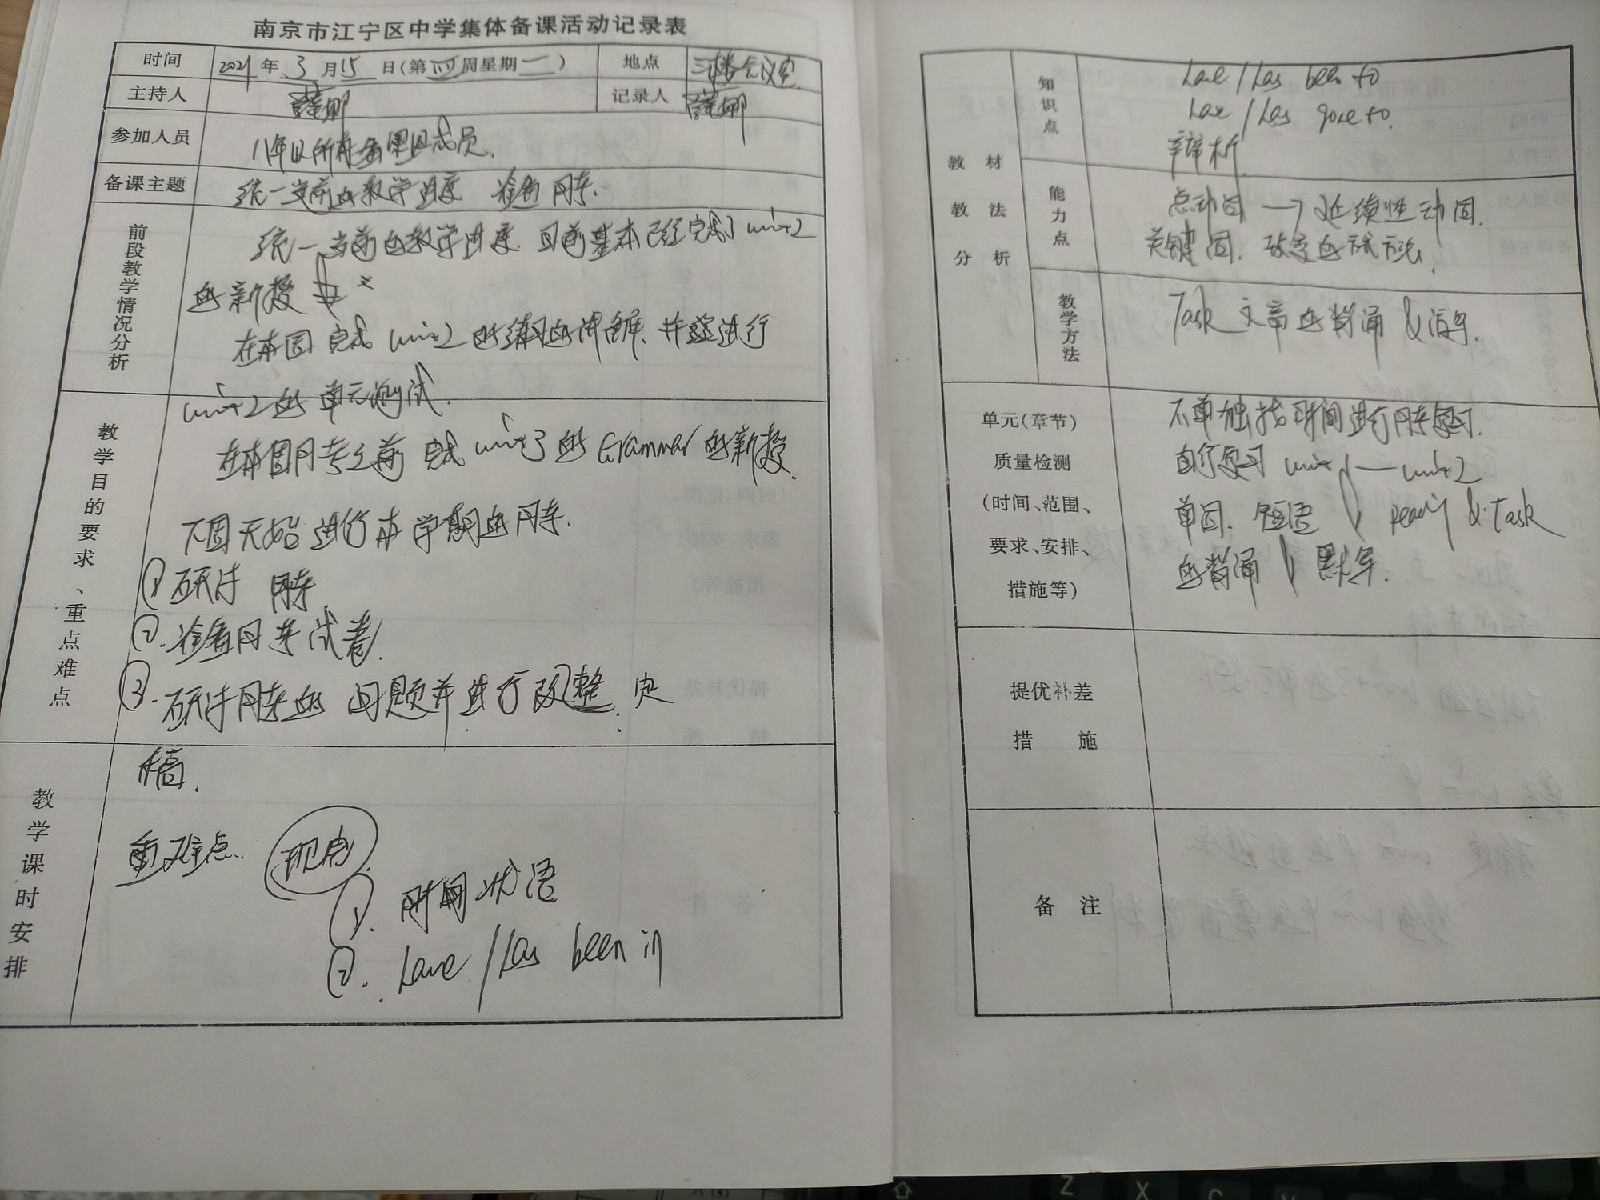 南京市江宁区中学集体备课活动记录表
时间 2021年3月15日(第四周星期一) 地点 三楼会议室
主持人 记录人
参加人员 八年级所有备课组成员.
备课主题 统一当前的教学进度 检查月考.
前段教学情况分析
统一当前的教学进度 目前基本已经完成了unit2
的新授
在本周完成unit2的练习的讲解.并进行
unit2的单元测试.
教学目的要求、重点难点
在本周月考之前完成unit3的Grammar的新授.
下周开始进行本学期的月考.
① 研讨 月考
②. 检查月考试卷.
③. 研讨月考的问题并进行改整.定
稿.
教学课时安排
重难点. 现完
①. 时间状语
②. have/has been in
教材教法分析
知识点
have/has been to
have/has gone to.
辨析
能力点
点动词→延续性动词.
关键词.
教学方法
Task文章的背诵&语
单元(章节)
质量检测
(时间、范围、
要求、安排、
措施等)
不单独抽时间进行月考复习.
自行复习unit1——unit2
单词.短语 ready & Task
的背诵 默写.
提优补差
措施
备注